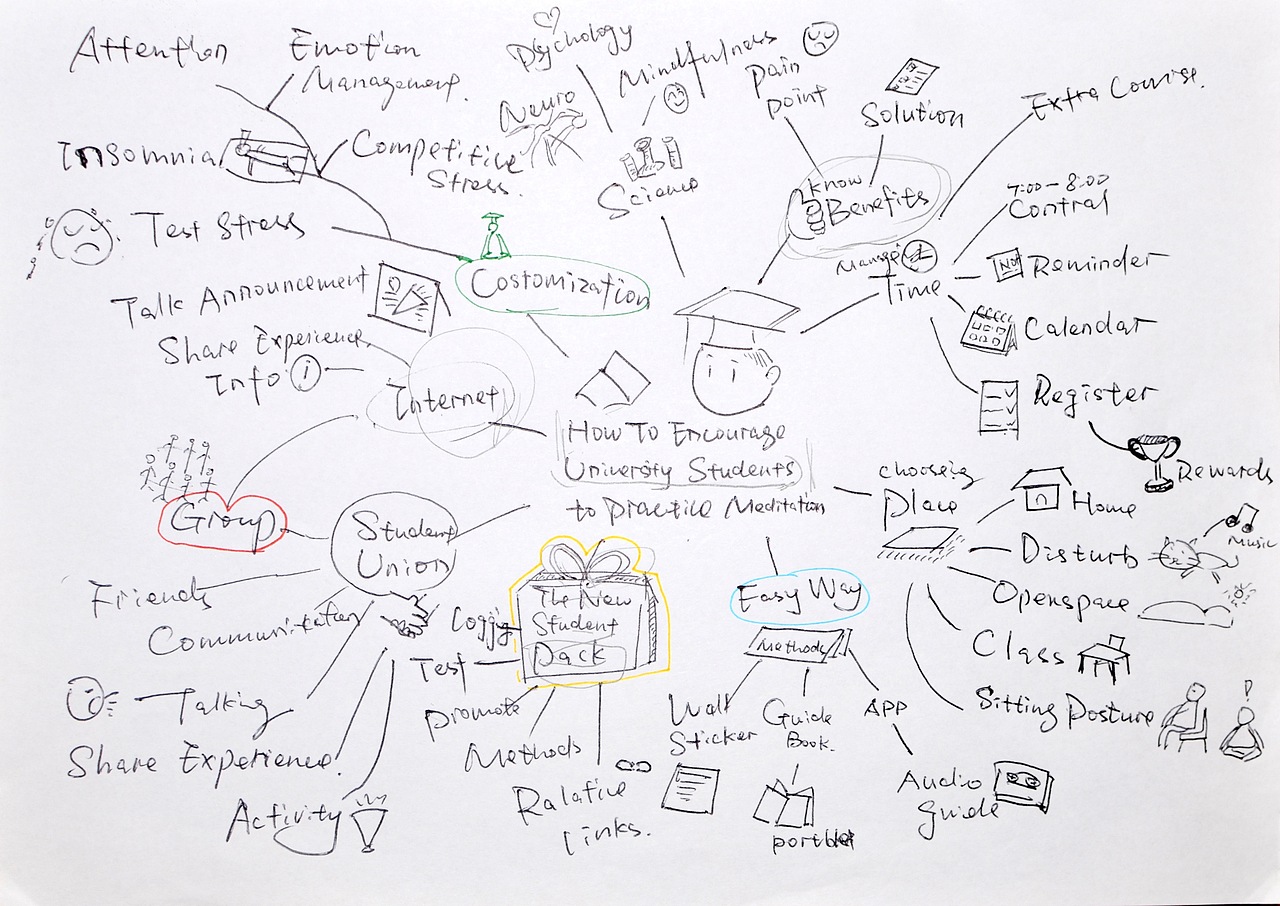 Attention
Emotion
Management.
Insomnia
Competitive
Stress.
Test Stress
Costomization
Psychology
Neuro
Mindfulness
Science
Pain
point
Solution
know
Benefits
Extra Course.
Manage
Time
7:00-8:00
Contral
Reminder
Calendar
Register
Rewards
Talk Announcement
Share Experience
Info i
Internet
How To Encourage
University Students
to Practice Meditation
Group
Student
Union
Friends
Communication
Talking
Share Experience!
Activity
The New
Student
Pack
Test
promote
Methods
Ralative
links.
Easy Way
Methods
Wall
Sticker
Guide
Book.
APP
Audio
Guide
choosing
Place
Home
Disturb
Music
Openspace
Class
Sitting Posture